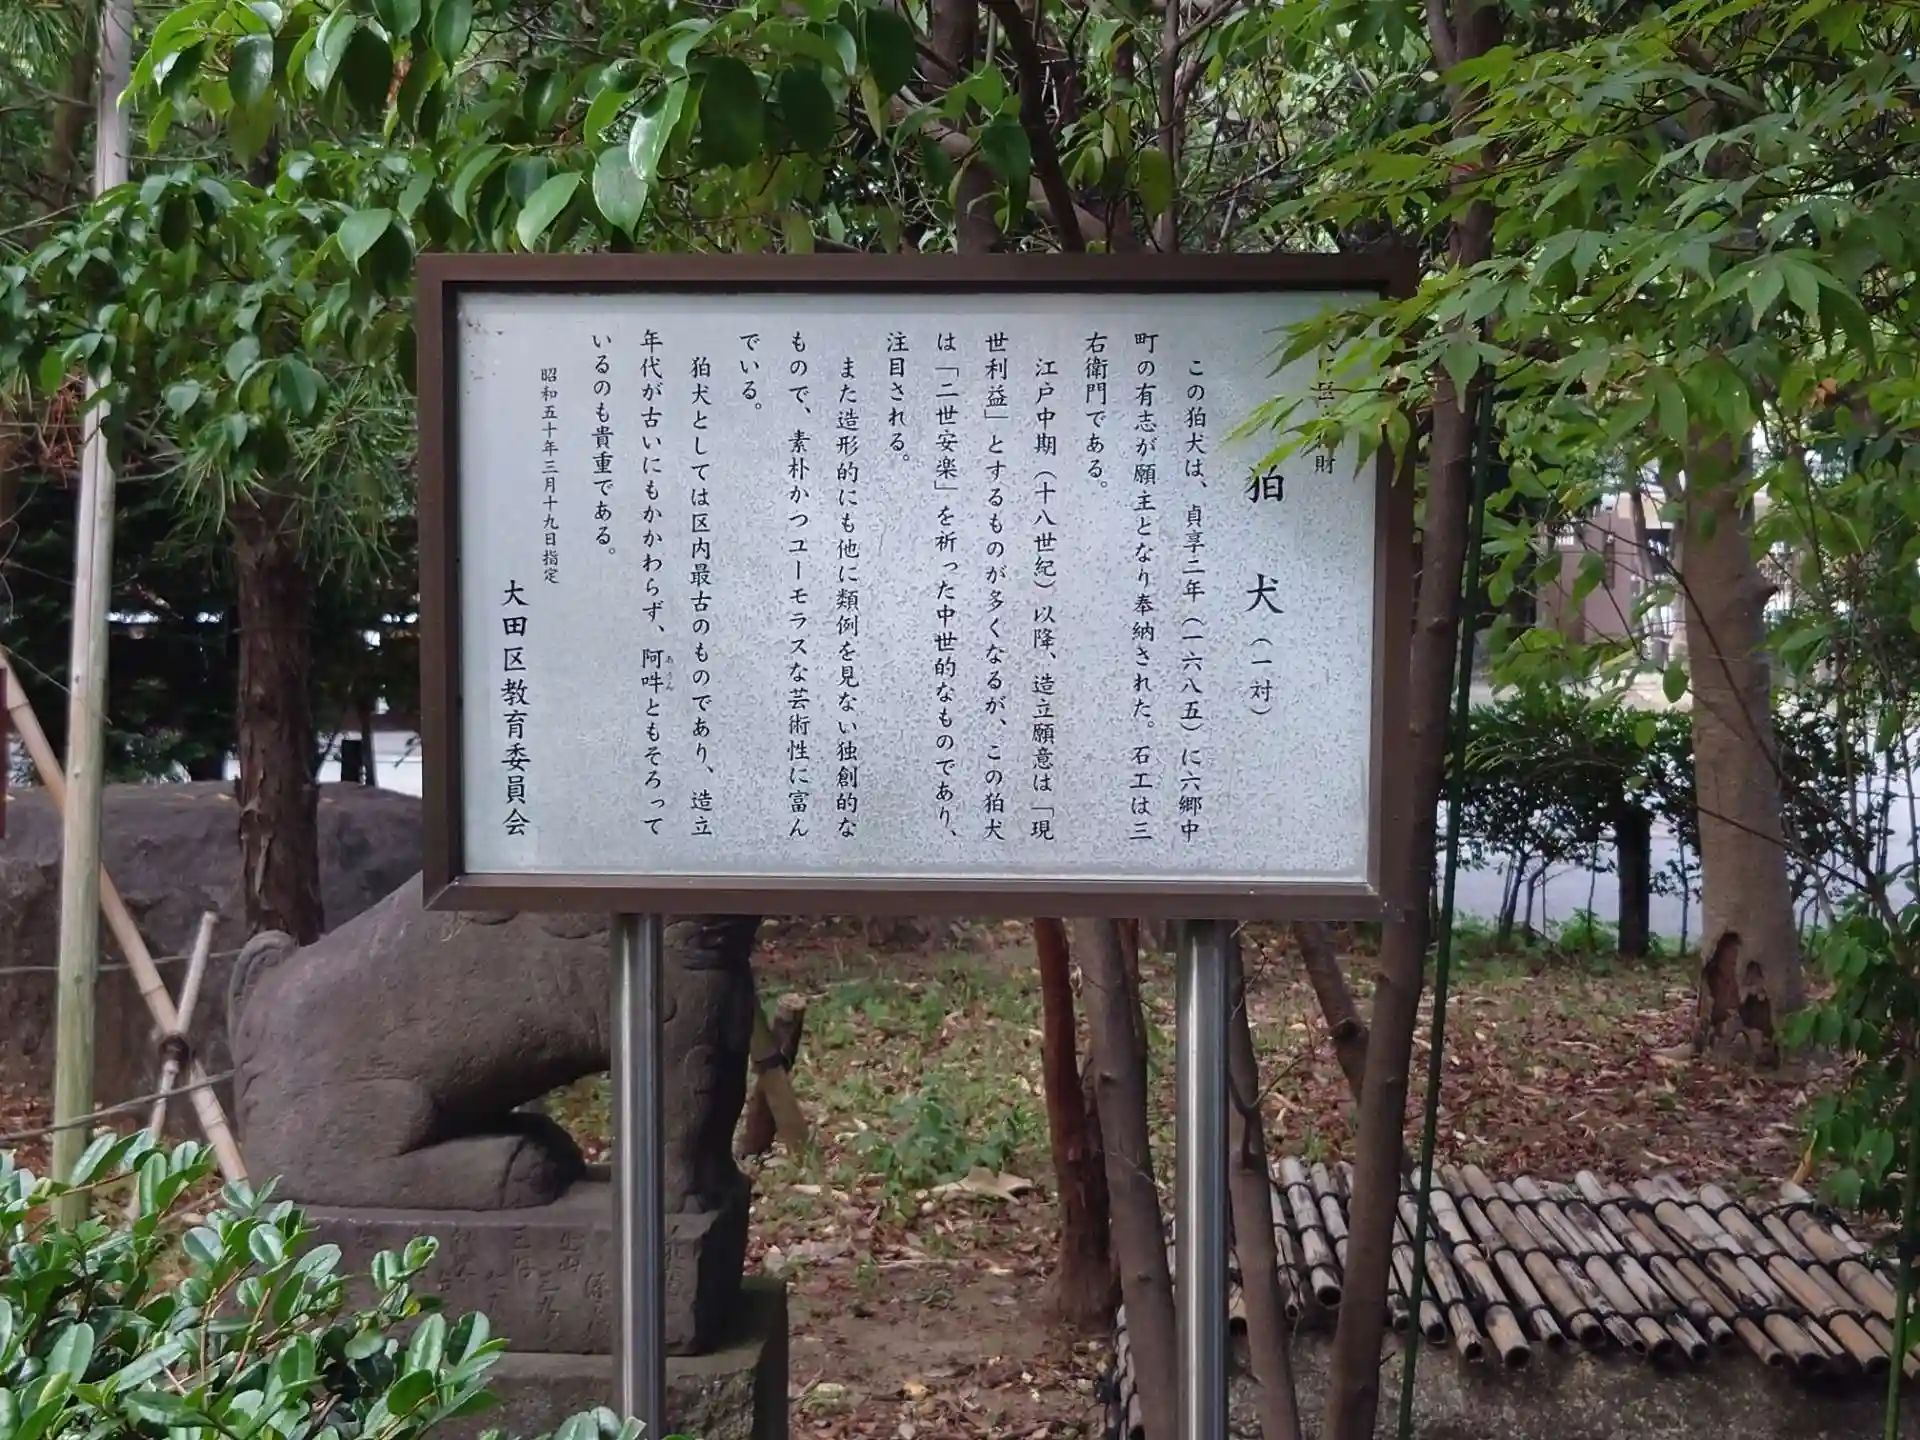 財
狛犬(一対)
この狛犬は、貞享二年(一六八五)に六郷中
町の有志が願主となり奉納された。石工は三
右衛門である。
江戸中期(十八世紀)以降、造立願意は「現
世利益」とするものが多くなるが、この狛犬
は「二世安楽」を祈った中世的なものであり、
注目される。
また造形的にも他に類例を見ない独創的な
もので、素朴かつユーモラスな芸術性に富ん
でいる。
狛犬としては区内最古のものであり、造立
年代が古いにもかかわらず、阿吽ともそろって
あうん
いるのも貴重である。
昭和五十年三月十九日指定
大田区教育委員会